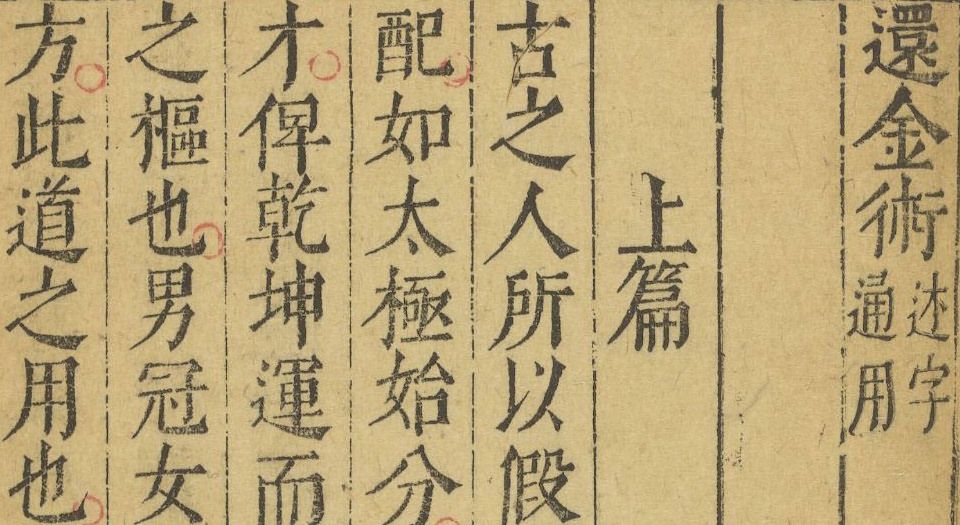 還金術述字通用
上篇
古之人所以假
配如太極始分
才俾乾坤運而
之樞也男冠女
方此道之用也